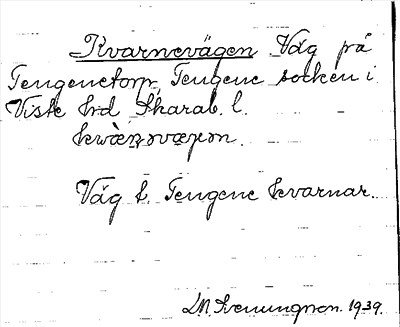 Kvarnevägen Väg på
Tengenetorp, Tengene socken i
Viste hrd Skarab. l.
kwàṇṇovægən.
Väg t. Tengene kvarnar.
1939.